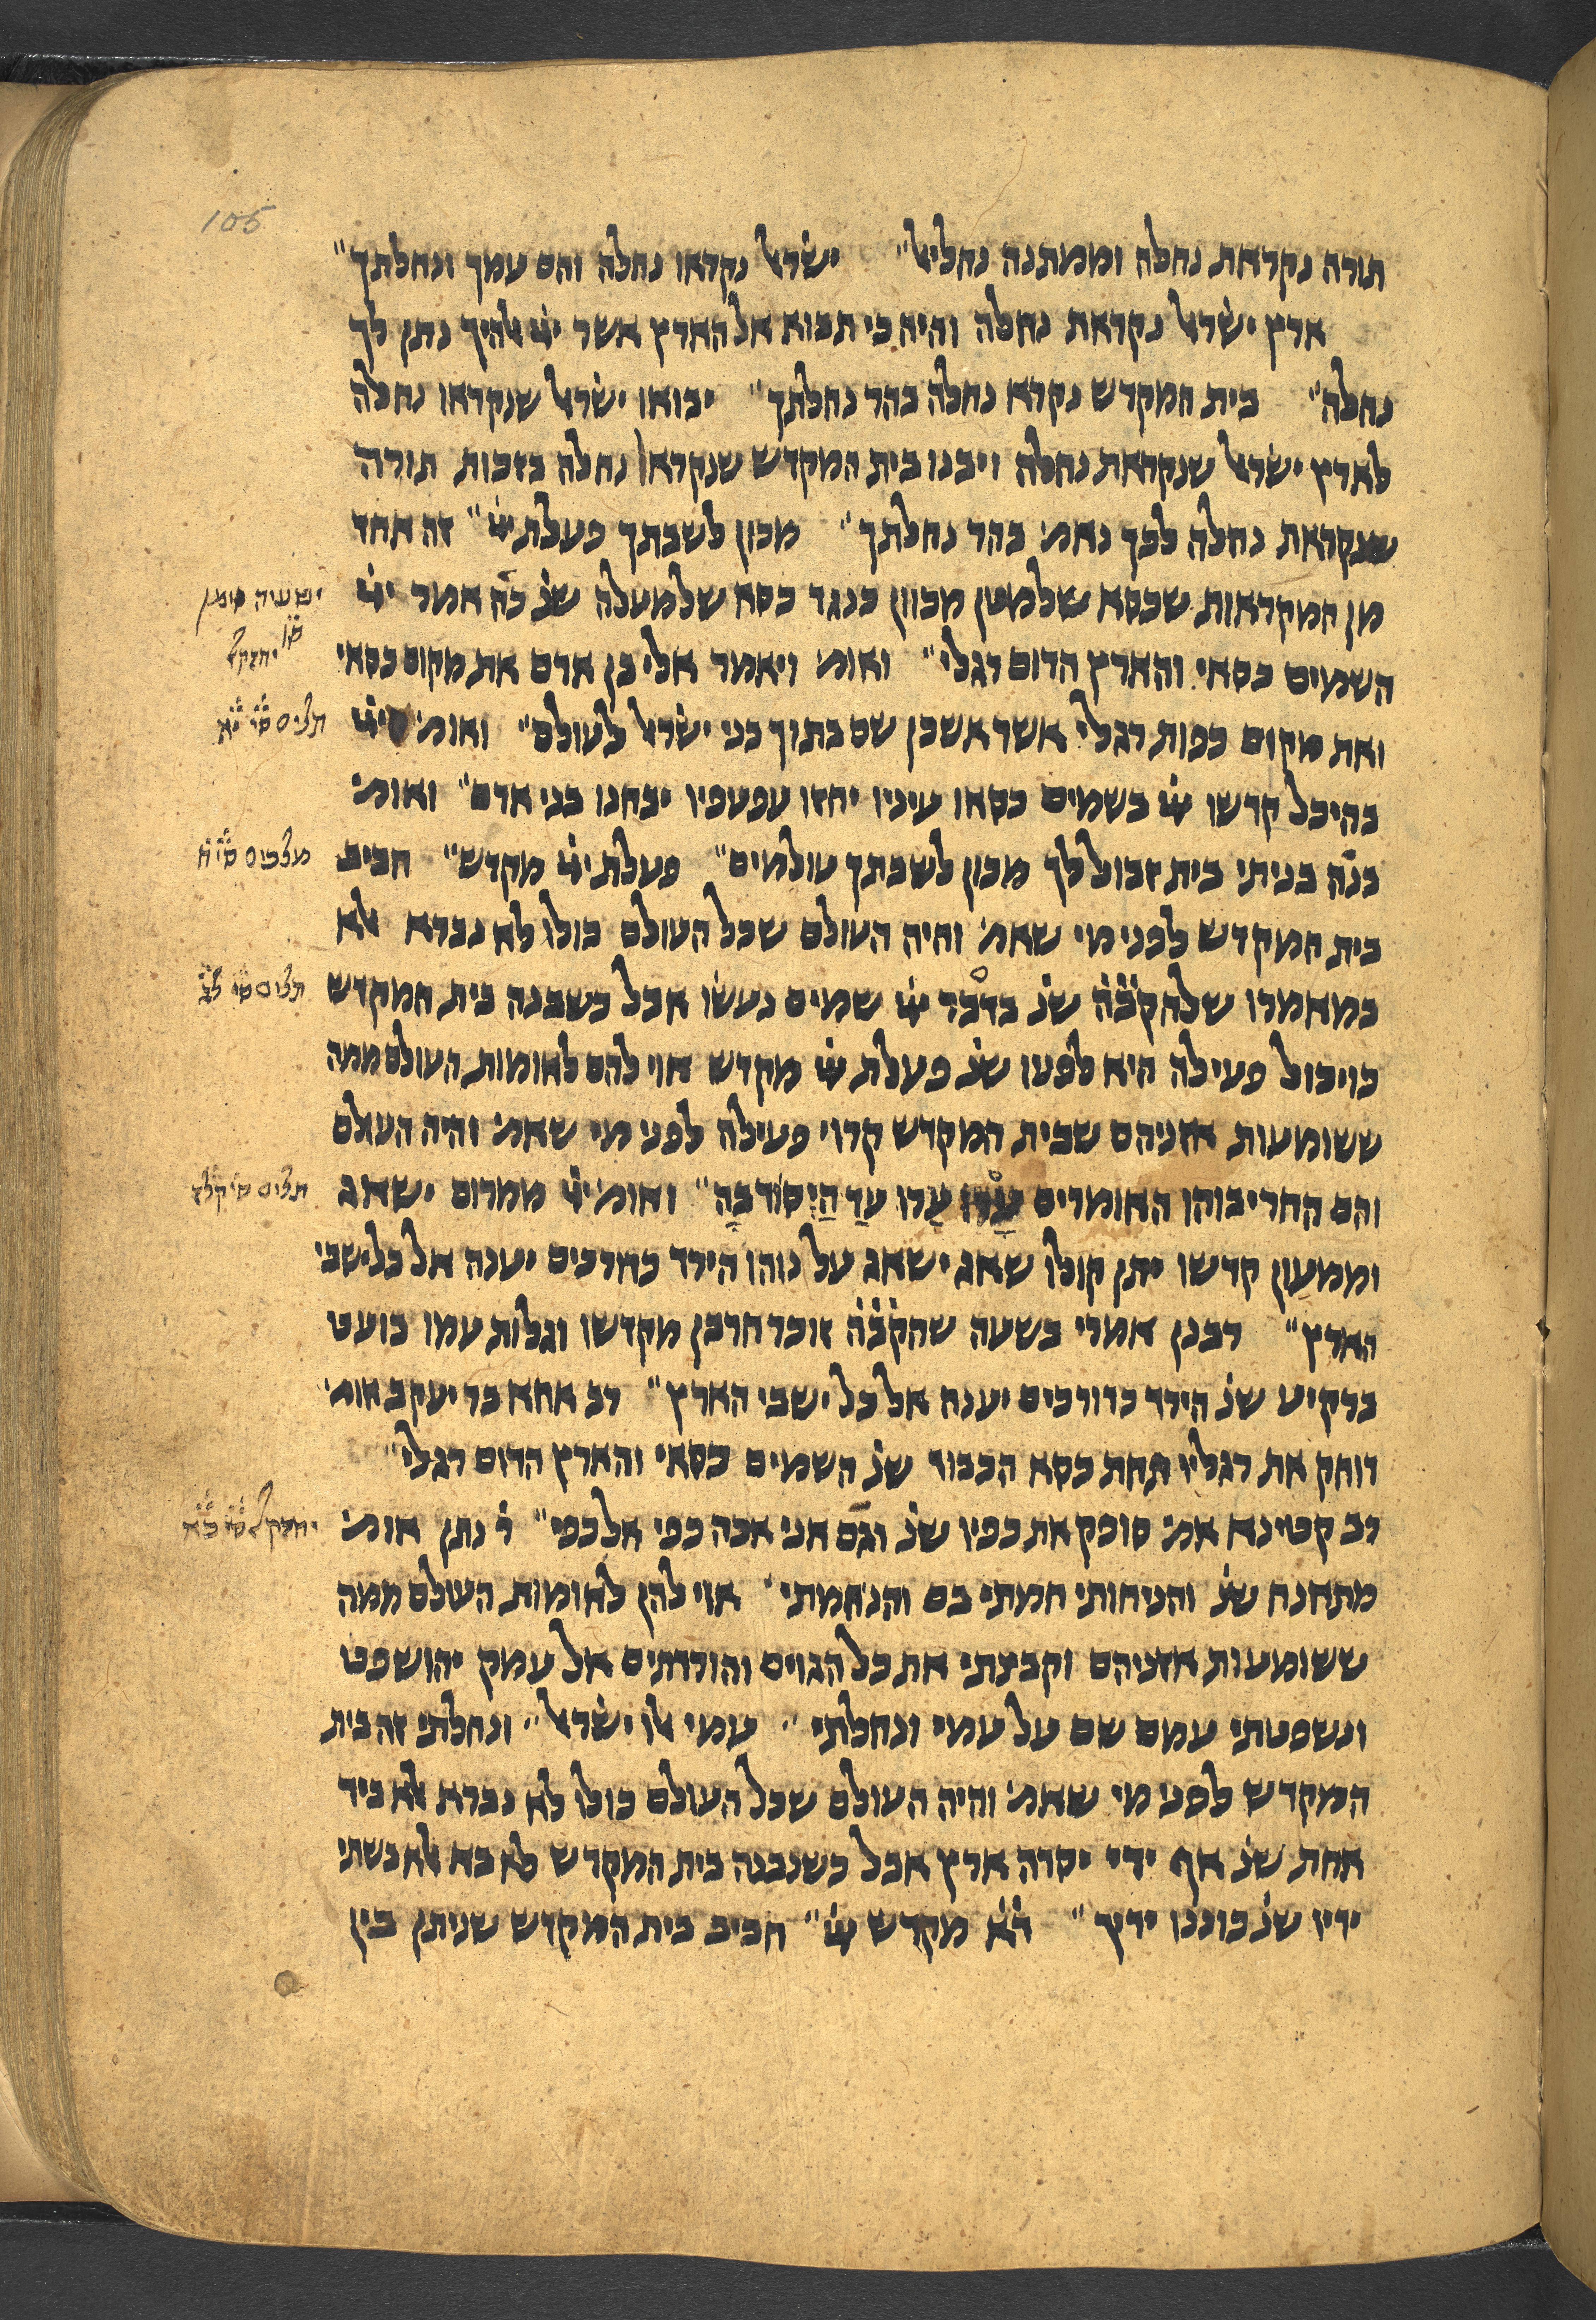 105
תורה נקראת נחלה וממתנה נחליאל" ישׂראל נקראו נחלה והם עמך ונחלתך"
ארץ ישׂראל נקראת נחלה והיה כי תבוא אל הארץ אשר ייׄ אלהיך נתן לך
נחלה" בית המקדש נקרא נחלה בהר נחלתך" יבואו ישׂראל שנקראו נחלה
לארץ ישׂראל שנקראת נחלה ויבנו בית המקדש שנקרא נחלה בזכות תורה
שנקראת נחלה לכך נאמ׳ בהר נחלתך" מכון לשבתך פעלת ייׄ" זה אחד
מן המקראות שכסא שלמטן מכוון כנגד כסא שלמעלה שנׄ כה אמר ייׄ
ישעיה סימן
סׄוׄ יחזקל
השמים כסאי והארץ הדום רגלי" ואומ׳ ויאמר אלי בן אדם את מקום כסאי
ואת מקום כפות רגלי אשר אשכן שם בתוך בני ישׂראל לעולם" ואומ׳ ייׄ
תלים סׄיׄ יׄאׄ
בהיכל קדשו ייׄ בשמים כסאו עיניו יחזו עפעפיו יבחנו בני אדם" ואומ׳
בנה בניתי בית זבול לך מכון לשבתך עולמים" פעלת ייׄ מקדש" חביב
מלכים סׄיׄ חׄ
בית המקדש לפני מי שאמ׳ והיה העולם שכל העולם כולו לא נברא אלא
במאמרו שלהקׄבׄהׄ שנׄ בדבר ייׄ שמים נעשׂו אבל כשבנה בית המקדש
תלים סׄיׄ לׄגׄ
כויכול פעילה היא לפניו שנׄ פעלת ייׄ מקדש אוי להם לאומות העולם ממה
ששומעות אזניהם שבית המקדש קרוי פעילה לפני מי שאמ׳ והיה העולם
והם החריבוהו האומרים עָרוּ עָרוּ עַד הַיְסוֹד בָּהּ" ואומ׳ ייׄ ממרום ישאג
תלים סׄיׄ קׄלׄזׄ
וממעון קדשו יתן קולו שאג ישאג על נוהו הידד כדרכים יענה אל כל ישבי
הארץ" רבנן אמרי בשעה שהקׄבׄהׄ זוכר חרבן מקדשו וגלות עמו בועט
ברקיע שנׄ הידד כדורכים יענה אל כל ישבי הארץ" רב אחא בר יעקב אומ׳
דוחק את רגליו תחת כסא הכבוד שנׄ השמים כסאי והארץ הדום רגלי"
רב קטינא אמ׳ סופק את כפיו שנׄ וגם אני אכה כפי אל כפי" רׄ נתן אומ׳
יחזקל סׄיׄ כׄאׄ
מתאנח שנׄ והניחותי חמתי בם והנחמתי" אוי להן לאומות העולם ממה
ששומעות אזניהם וקבצתי את כל הגוים והורדתים אל עמק יהושפט
ונשפטתי עמם שם על עמי ונחלתי" עמי אלו ישׂראל" ונחלתי זה בית
המקדש לפני מי שאמ׳ והיה העולם שכל העולם כולו לא נברא אלא ביד
אחת שנׄ אף ידי יסדה ארץ אבל כשנבנה בית המקדש לא בא אלא בשתי
ידיו שנׄ כוננו ידיך" דׄאׄ מקדש ייׄ" חביב בית המקדש שניתן בין